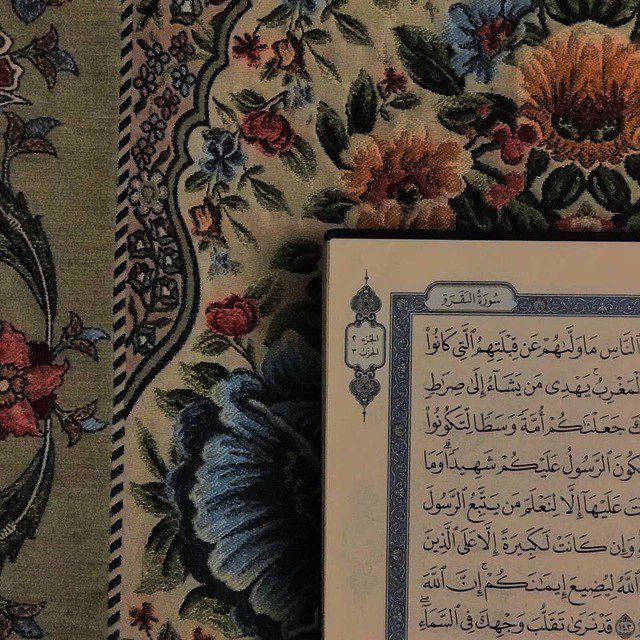 سُورَةُ البَقَرَةِ
الجُزْءُ ٢
الحِزْبُ ٣
ٱلنَّاسِ مَا وَلَّىٰهُمْ عَن قِبْلَتِهِمُ ٱلَّتِى كَانُوا۟
يَهْدِى مَن يَشَآءُ إِلَىٰ صِرَٰطٍ
جَعَلْنَٰكُمْ أُمَّةً وَسَطًا لِّتَكُونُوا۟
ٱلرَّسُولُ عَلَيْكُمْ شَهِيدًا ۗ وَمَا
عَلَيْهَآ إِلَّا لِنَعْلَمَ مَن يَتَّبِعُ ٱلرَّسُولَ
وَإِن كَانَتْ لَكَبِيرَةً إِلَّا عَلَى ٱلَّذِينَ
ٱللَّهُ لِيُضِيعَ إِيمَٰنَكُمْ ۚ إِنَّ ٱللَّهَ
١٤٣ قَدْ نَرَىٰ تَقَلُّبَ وَجْهِكَ فِى ٱلسَّمَآءِ ۖ